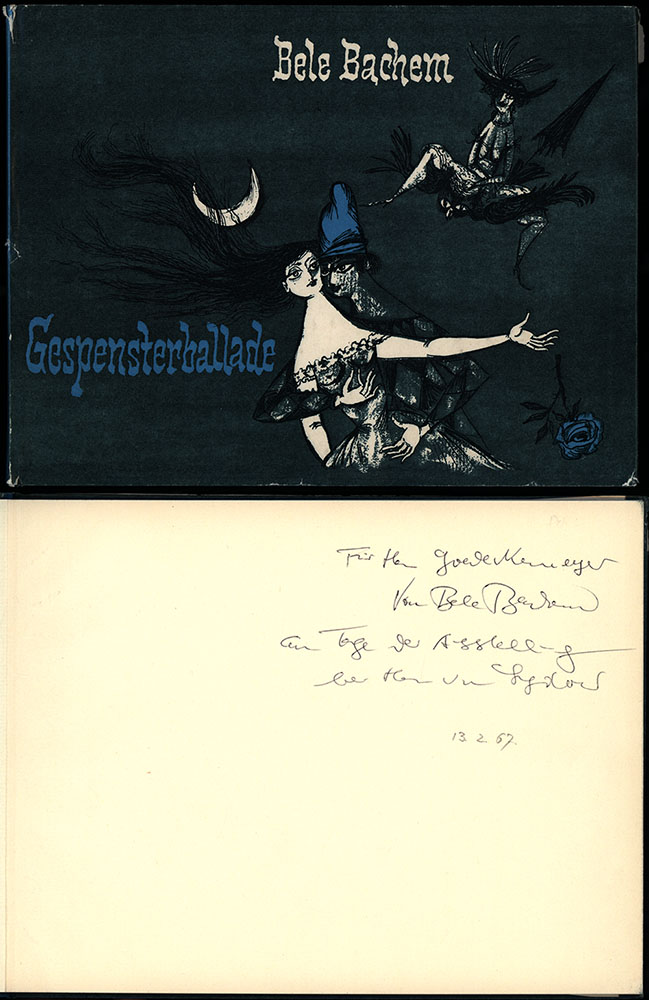 Bele Bachem
Gespensterballade
Für Herrn Goedeckemeyer
Von Bele Bachem
am Tage der Ausstellung
bei Herrn von
13. 2. 67.